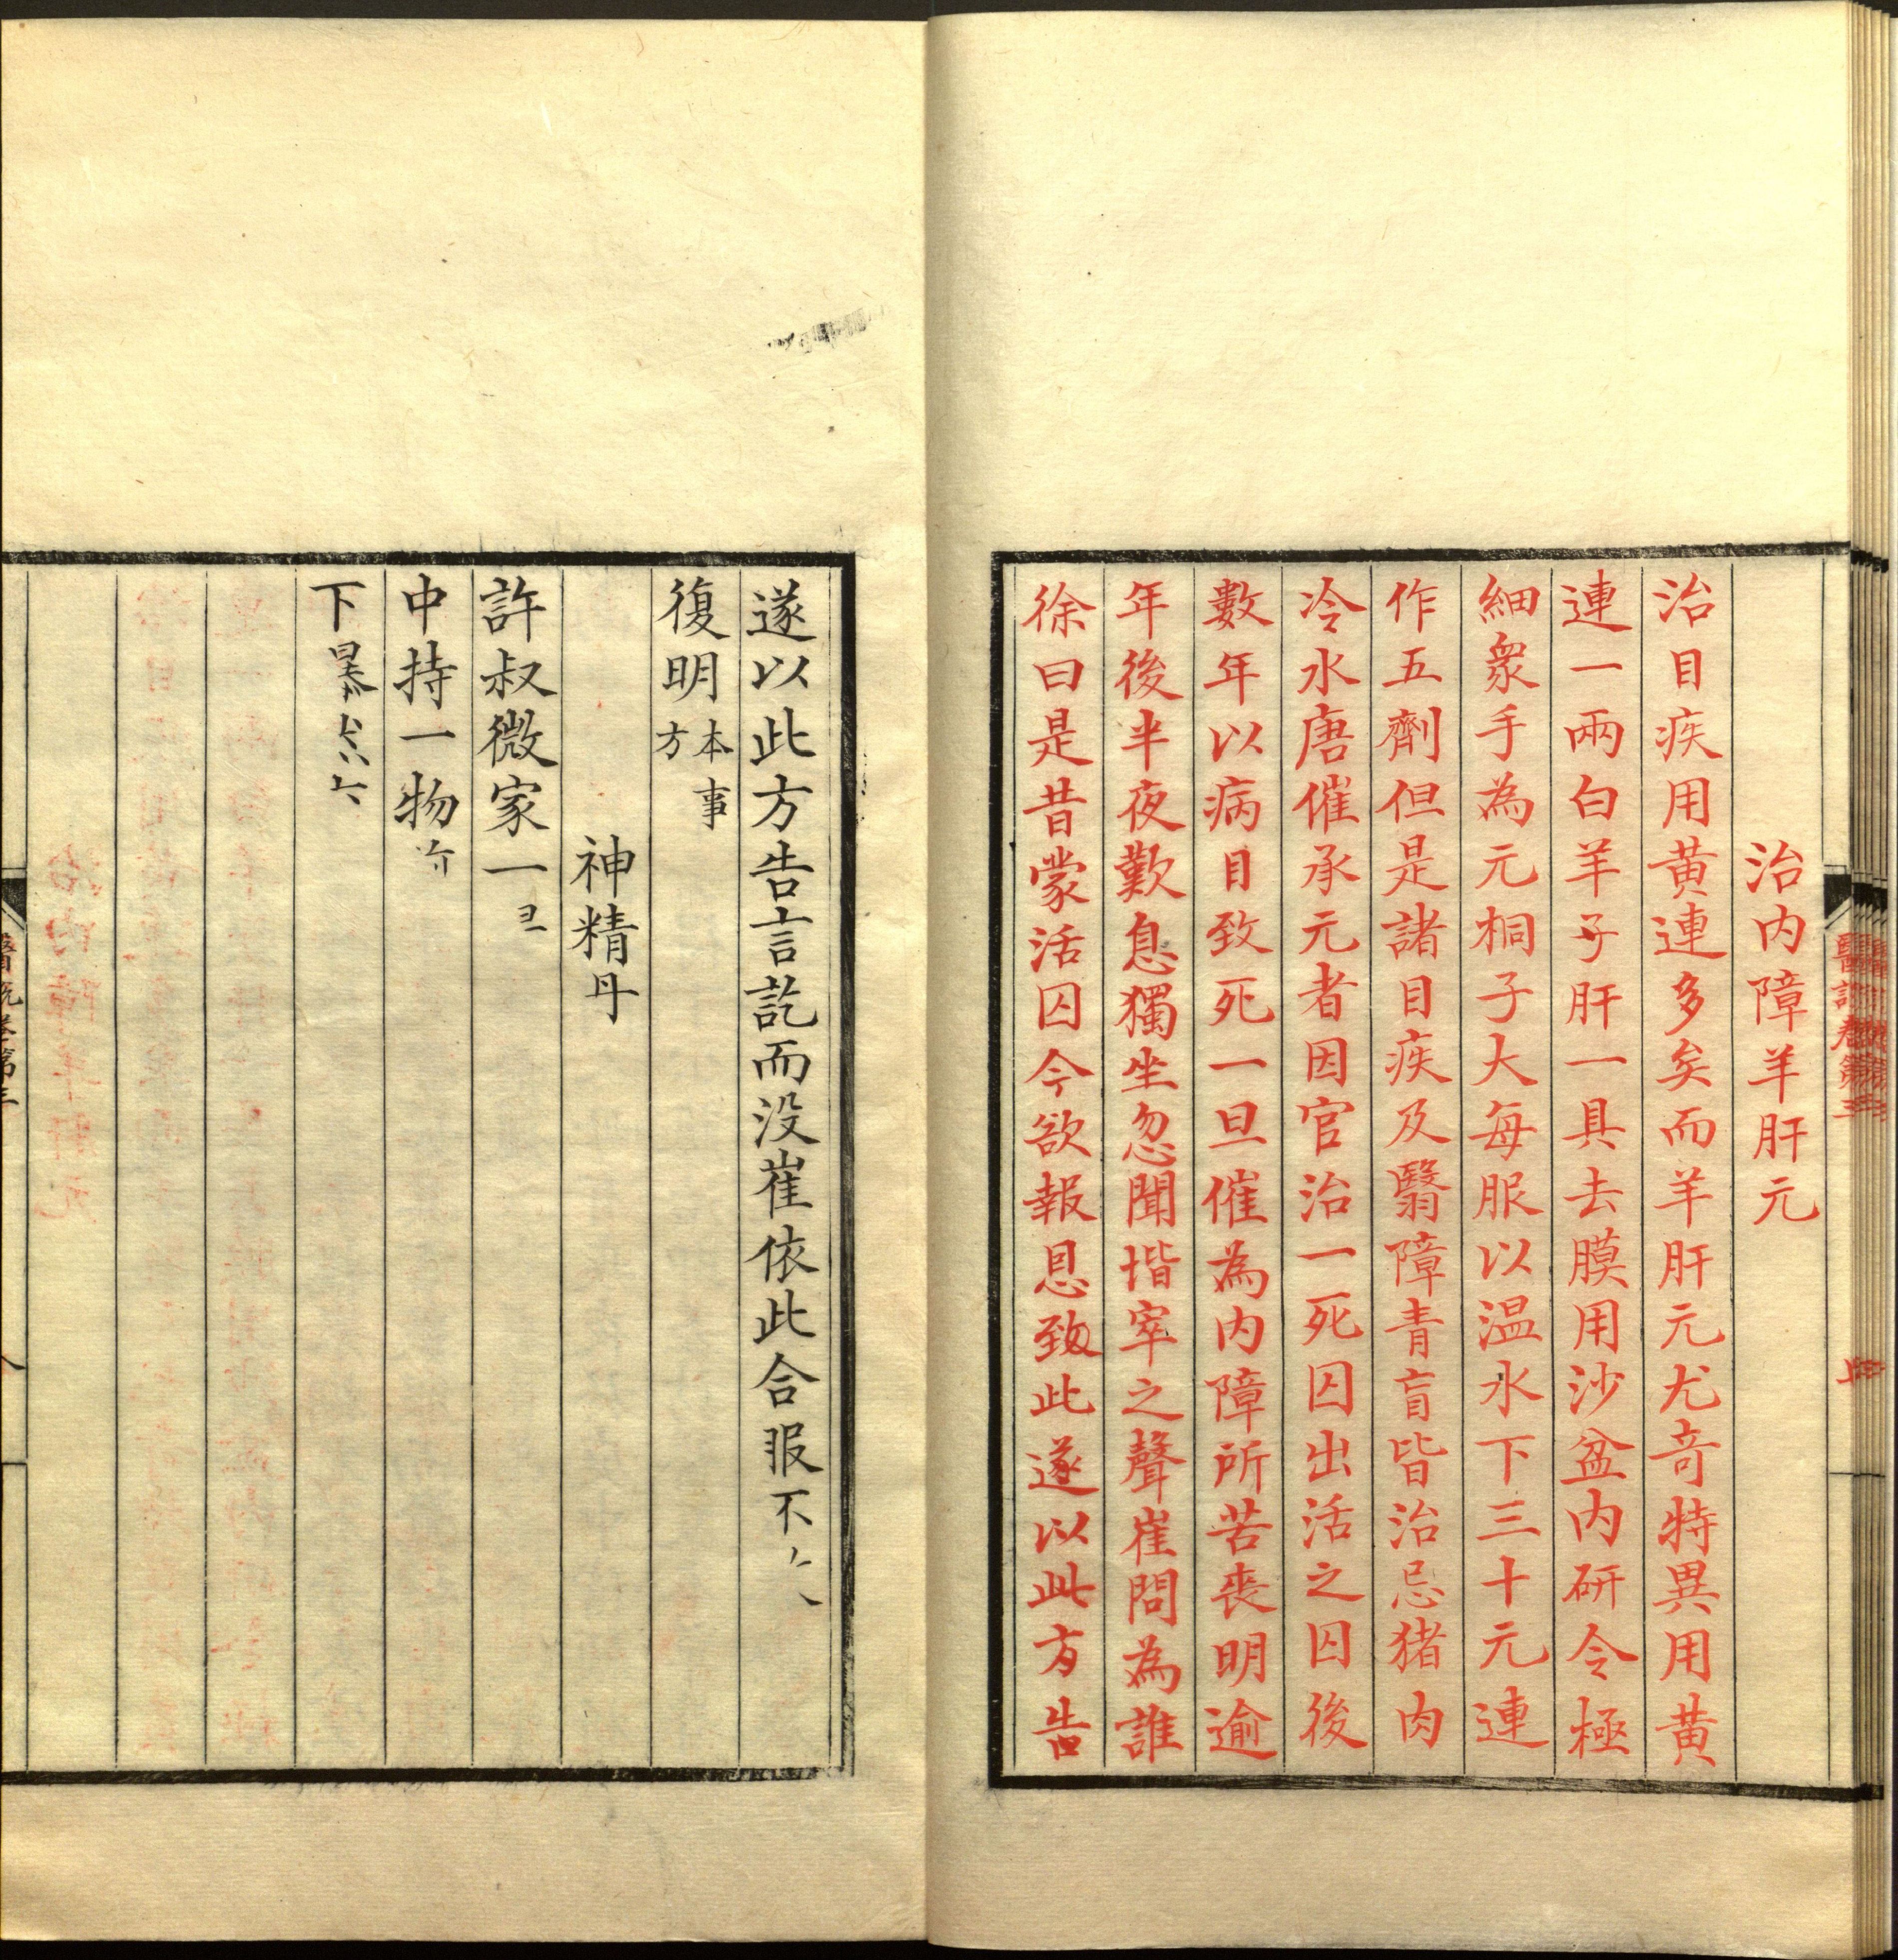 治内障羊肝元
治目疾用黄連多矣而羊肝元尤竒特異用黄
連一兩白羊子肝一具去膜用沙盆内研令極
細衆手為元桐子大每服以温水下三十元連
作五劑但是諸目疾及翳障青盲皆治忌猪肉
冷水唐催承元者因官治一死囚出活之囚後
數年以病目致死一旦催為内障所苦喪明逾
年後半夜歎息獨坐忽聞堦窣之聲崔問為誰
徐曰是昔蒙活囚今欲報恩致此遂以此方告
遂以此方告言訖而没崔依此合服不
復明本事方
神精丹
許叔微家一
中持一物
下